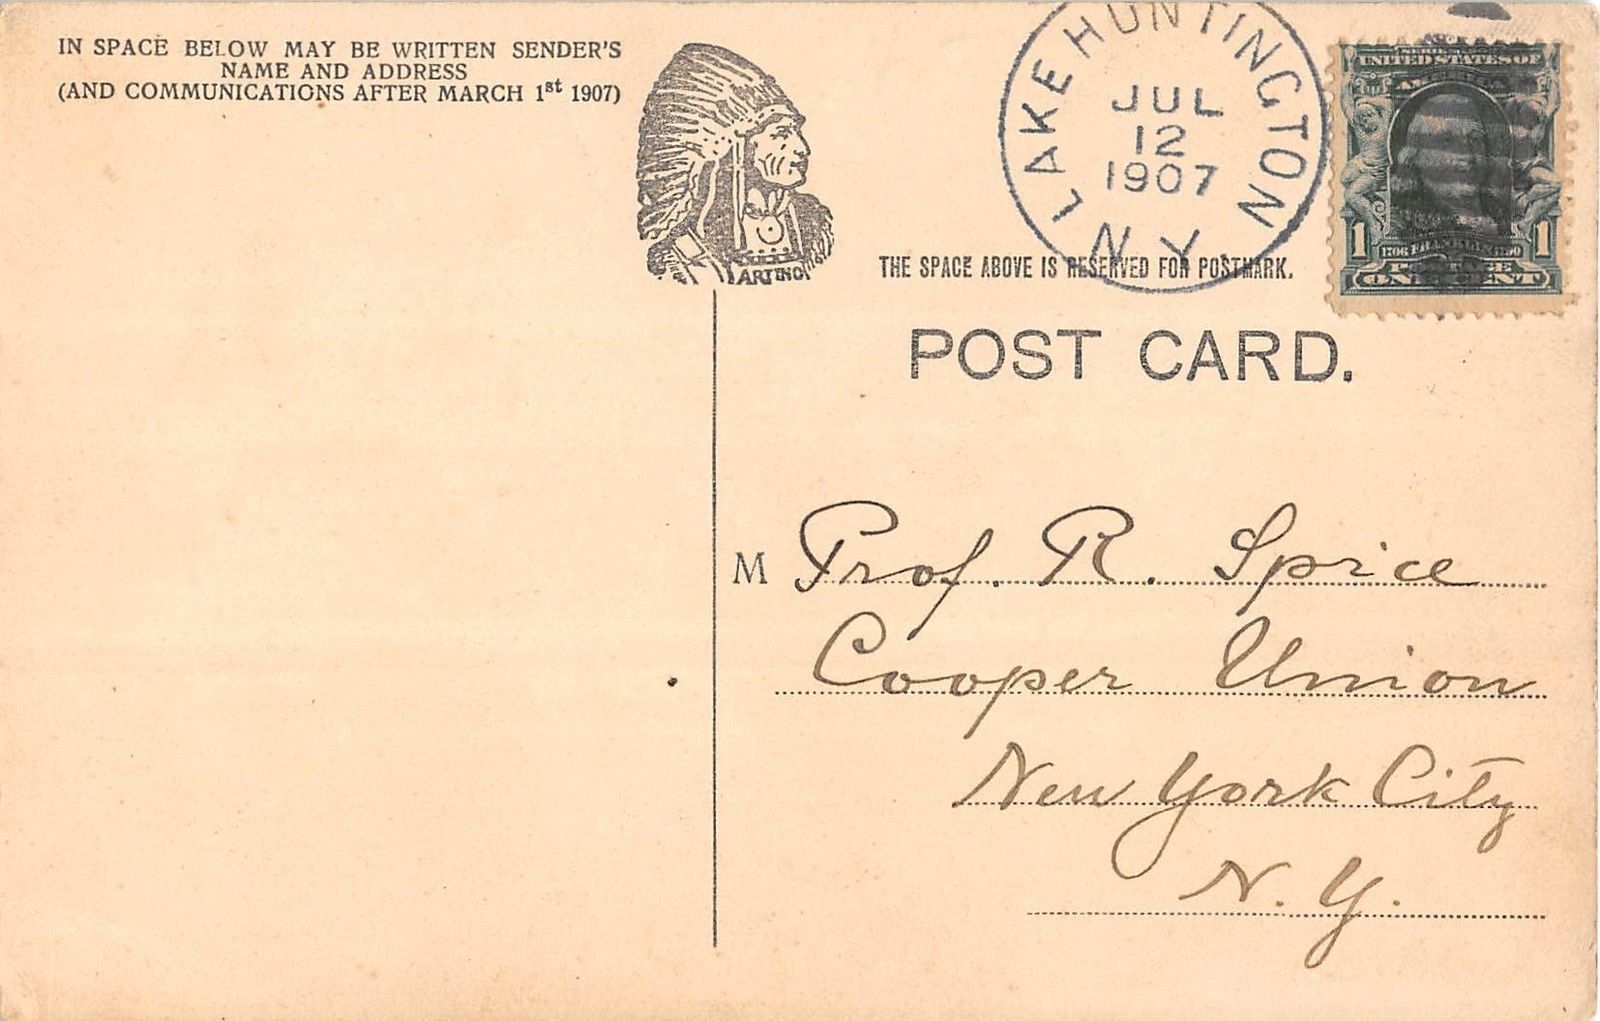 IN SPACE BELOW MAY BE WRITTEN SENDER'S
NAME AND ADDRESS
(AND COMMUNICATIONS AFTER MARCH 1st 1907)
ARTINO
LAKE HUNTINGTON
JUL
12
1907
N.Y.
UNITED STATES OF
1 1706 FRANKLIN 1790 1
ONE CENT
THE SPACE ABOVE IS RESERVED FOR POSTMARK.
POST CARD.
M Prof. R. Spice
Cooper Union
New York City
N. Y.